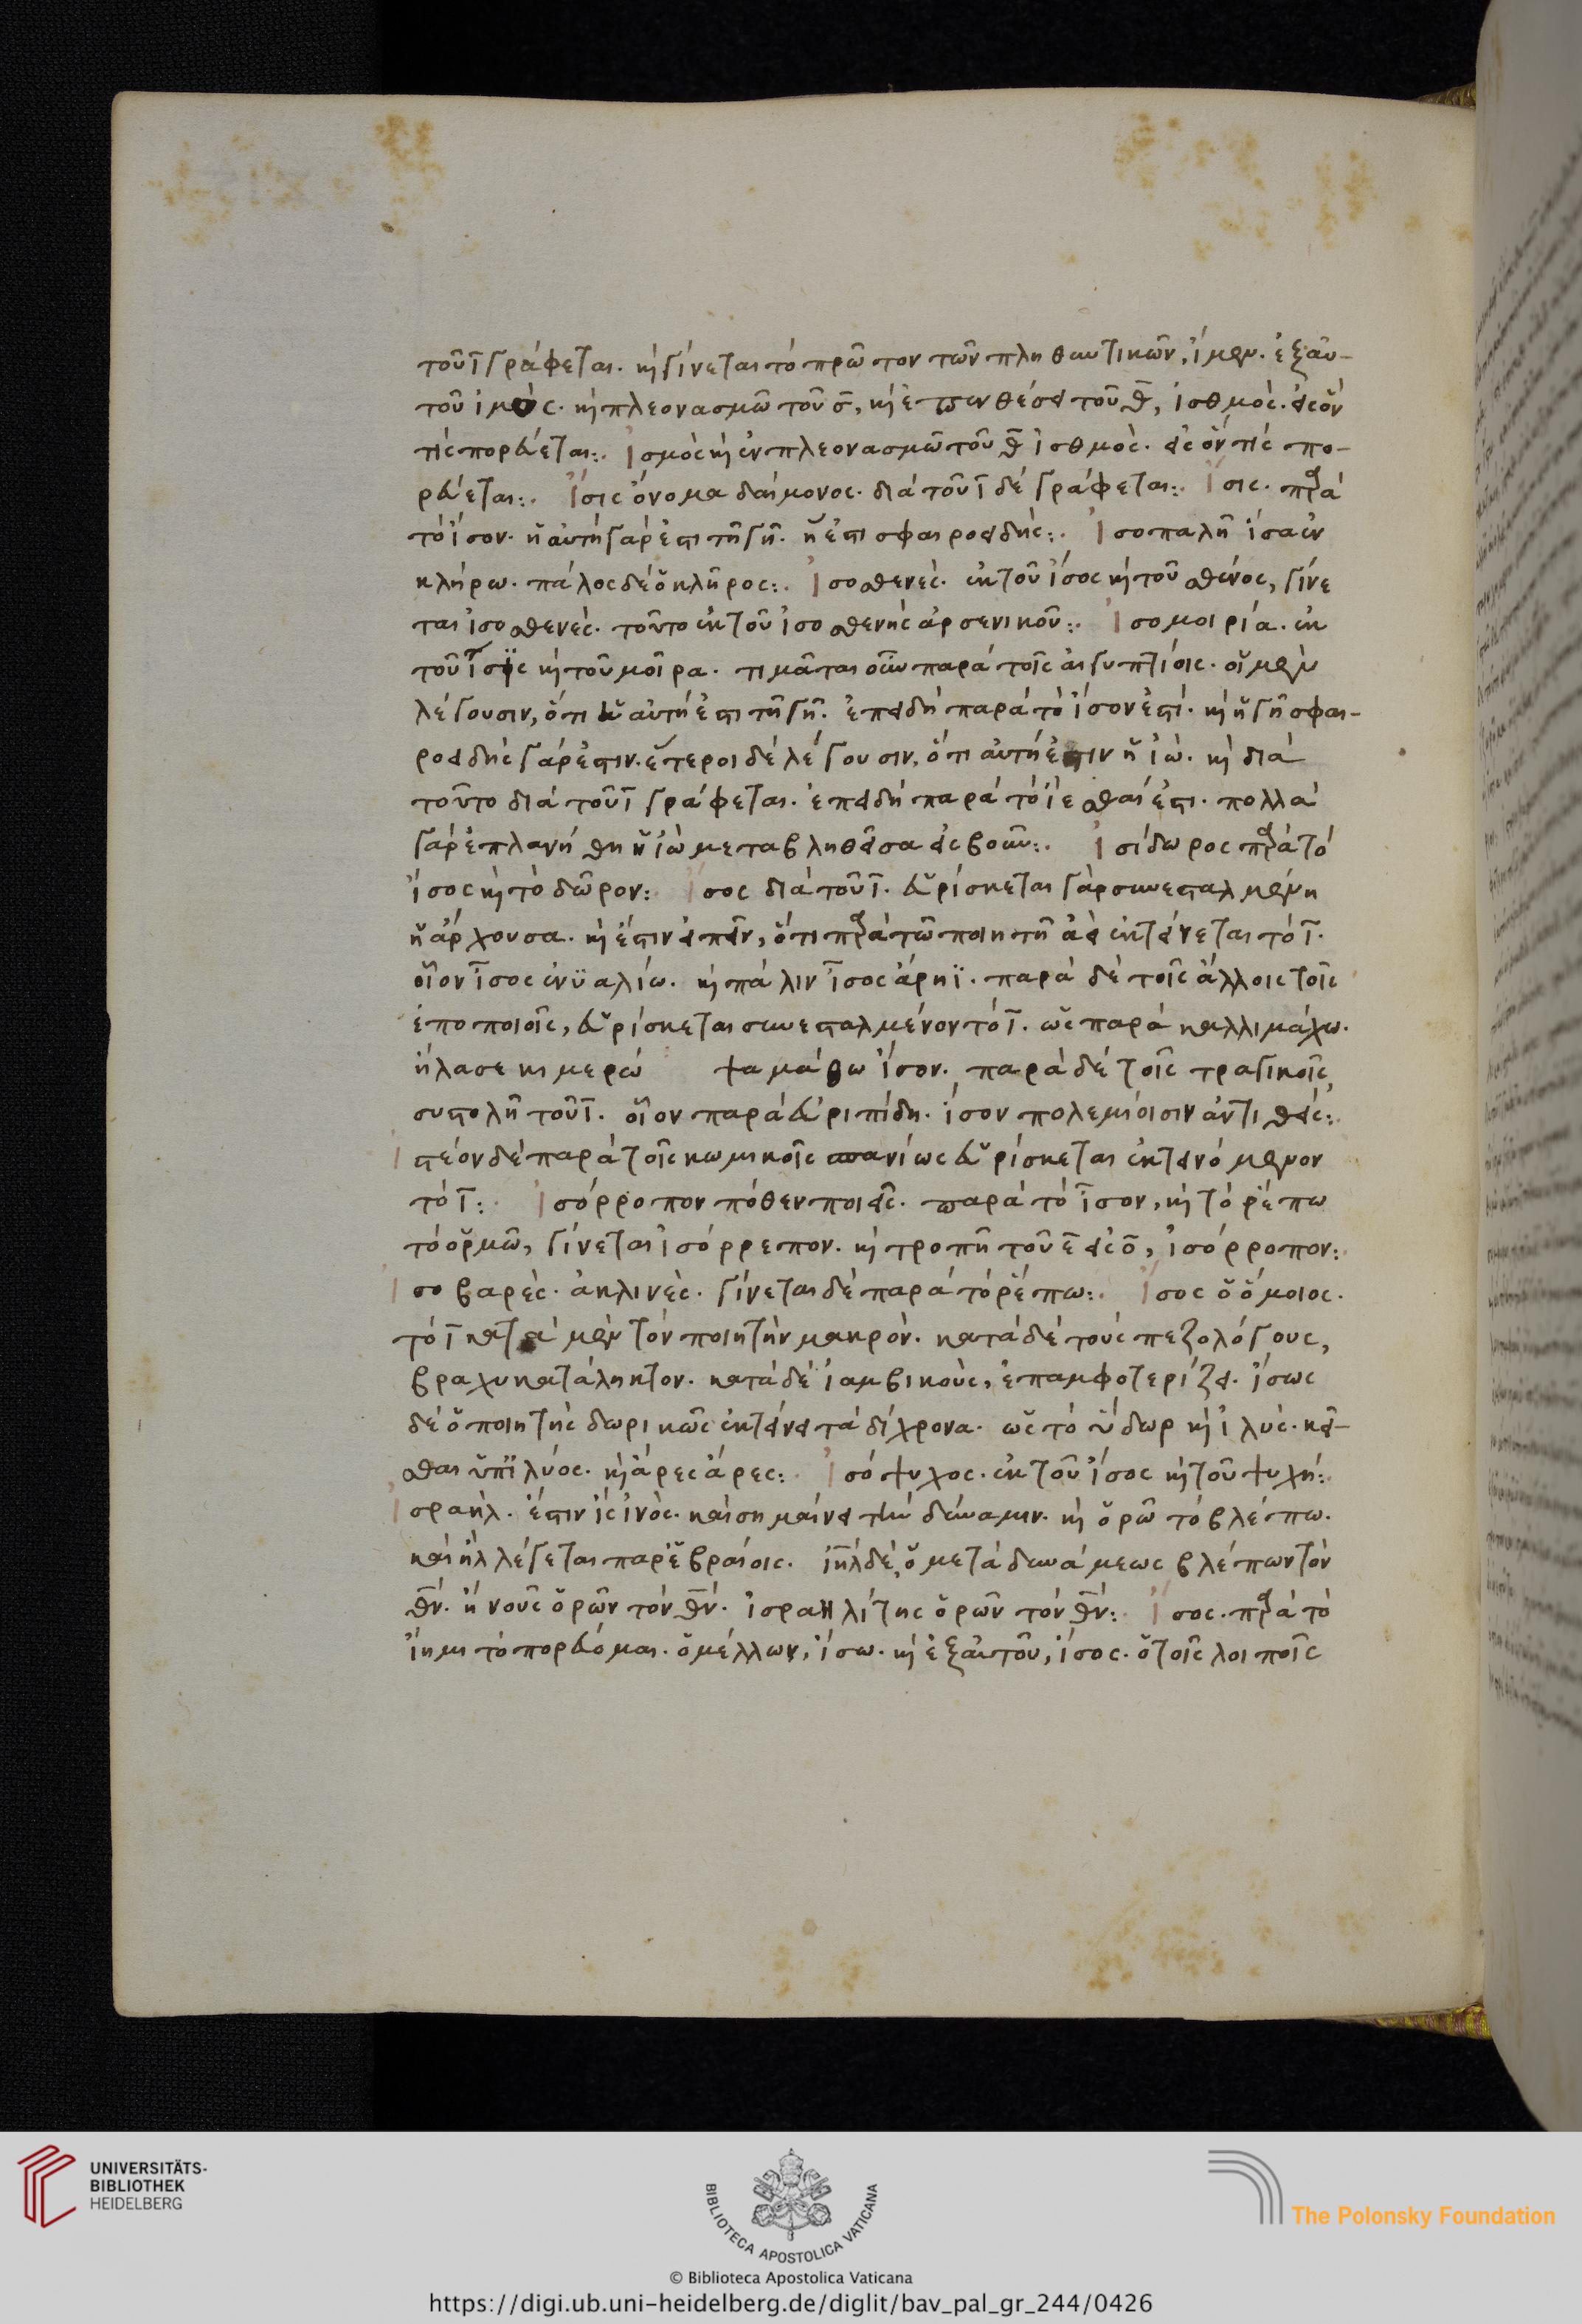 τοῦ ῑ γράφεται. κὴ γίνεται τὸ πρῶτον τῶν πληθυντικῶν, ἵμεν. ἐξ αὐ-
τοῦ ἰμὸς. κὴ πλεονασμῶ τοῦ σ̄, κὴ ἐπενθέσει τοῦ θ̄, ἰσθμὸς. εἰς ὃν
τὶς πορεύεται:. Ἰσμὸς κὴ ἐν πλεονασμῶ τοῦ θ̄ ἰσθμὸς. εἰς ὃν τὶς πο-
ρεύεται:. Ἴσις ὄνομα δαίμονος. διὰ τοῦ ῑ δὲ γράφεται:. Ἴσις. παρὰ
τὸ ἴσον. ἡ αὐτὴ γάρ ἐστι τῆ γῆ. ἥ ἐστι σφαιροειδὴς:. Ἰσοπαλῆ ἴσα ἐν
κλήρω. πάλος δὲ ὁ κλῆρος:. Ἰσοσθενές. ἐκ τοῦ ἴσος κὴ τοῦ σθένος, γίνε
ται ἰσοσθενές. τοῦτο ἐκ τοῦ ἰσοσθενὴς ἀρσενικοῦ:. Ἰσομοιρία. ἐκ
τοῦ ἶσος κὴ τοῦ μοῖρα. τιμᾶται οὖν παρὰ τοῖς αἰγυπτίοις. οἱ μὲν
λέγουσιν, ὅτι ἡ αὐτή ἐστι τῆ γῆ. ἐπειδὴ παρὰ τὸ ἴσον ἐστί. κὴ ἡ γῆ σφαι-
ροειδὴς γάρ ἐστιν. ἕτεροι δὲ λέγουσιν, ὅτι αὐτή ἐστιν ἡ ἰώ. κὴ διὰ
τοῦτο διὰ τοῦ ῑ γράφεται. ἐπειδὴ παρὰ τὸ ἵεσθαί ἐστι. πολλὰ
γὰρ ἐπλανήθη ἡ ἰὼ μεταβληθεῖσα εἰς βοῦν:. Ἰσίδωρος παρὰ τὸ
ἴσος κὴ τὸ δῶρον: Ἴσος διὰ τοῦ ῑ. εὑρίσκεται γὰρ συνεσταλμένη
ἡ ἄρχουσα. κὴ ἔστιν εἰπεῖν, ὅτι παρὰ τῶ ποιητῆ ἀεὶ ἐκτείνεται τὸ ῑ.
οἷον ἶσος ἐνϋαλίω. κὴ πάλιν ἶσος ἄρηϊ. παρὰ δὲ τοῖς ἄλλοις τοῖς
ἐποποιοῖς, εὑρίσκεται συνεσταλμένον τὸ ῑ. ὡς παρὰ καλλιμάχω.
ἤλασε κιμερώ ψαμάθω ἴσον. παρὰ δὲ τοῖς τραγικοῖς
συστολῆ τοῦ ῑ. οἷον παρὰ εὐριπίδη. ἴσον πολεμίοισιν ἀντιθείς:.
Ἰστέον δὲ παρὰ τοῖς κωμικοῖς σπανίως εὑρίσκεται ἐκτεινόμενον
τὸ ῑ: Ἰσόρροπον πόθεν ποιεῖς. παρὰ τὸ ἶσον, κὴ τὸ ῥέπω
τὸ ὁρμῶ, γίνεται ἰσόρρεπον. κὴ τροπῆ τοῦ ε̄ εἰς ο̄, ἰσόρροπον:
Ἰσοβαρὲς. ἀκλινὲς. γίνεται δὲ παρὰ τὸ ῥέπω:. Ἴσος ὁ ὅμοιος.
τὸ ῑ κατὰ μὲν τὸν ποιητὴν μακρὸν. κατὰ δὲ τοὺς πεζολόγους,
βραχυκατάληκτον. κατὰ δὲ ἰαμβικοὺς, ἐπαμφοτερίζει. ἴσως
δὲ ὁ ποιητὴς δωρικῶς ἐκτείνει τὰ δίχρονα. ὡς τὸ ὕδωρ κὴ ἰλύς. κεῖ-
σθαι ὑπ' ἰλύος. κὴ ἄρες ἄρες: Ἰσόψυχος. ἐκ τοῦ ἴσος κὴ τοῦ ψυχή:.
Ἰσραήλ. ἔστιν ἲς ἰνὸς. καὶ σημαίνει τὴν δύναμιν. κὴ ὁρῶ τὸ βλέπω.
καὶ ἢλ λέγεται παρ' ἑβραίοις. ἰη̄λ δὲ, ὁ μετὰ δυνάμεως βλέπων τὸν
θ̄ν. ἢ νοῦς ὁρῶν τὸν θ̄ν. ἰσραηλίτης ὁ ὁρῶν τὸν θ̄ν: Ἴσος. παρὰ τὸ
ἵημι τὸ πορεύομαι. ὁ μέλλων, ἥσω. κὴ ἐξ αὐτοῦ, ἴσος. ὁ τοῖς λοιποῖς
UNIVERSITÄTS-
BIBLIOTHEK
HEIDELBERG
BIBLIOTECA APOSTOLICA VATICANA
The Polonsky Foundation
© Biblioteca Apostolica Vaticana
https://digi.ub.uni-heidelberg.de/diglit/bav_pal_gr_244/0426